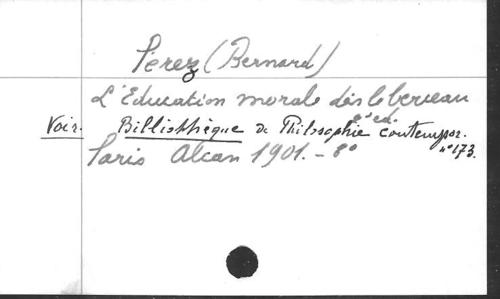 Pérez (Bernard)
L'Education morale dès le berceau
4e ed.
Voir. Bibliothèque de Philosophie contempor.
n° 173.
Paris Alcan 1901. - 8°